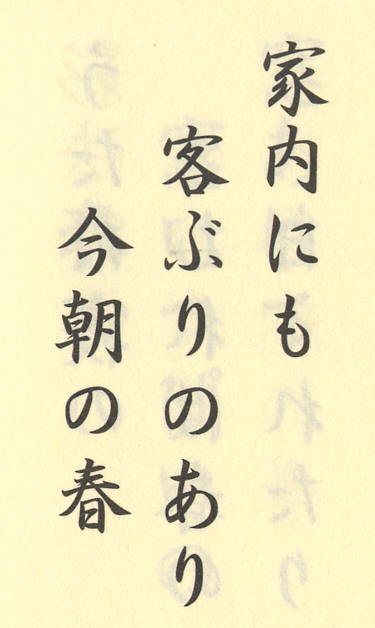 家内にも
客ぶりのあり
今朝の春